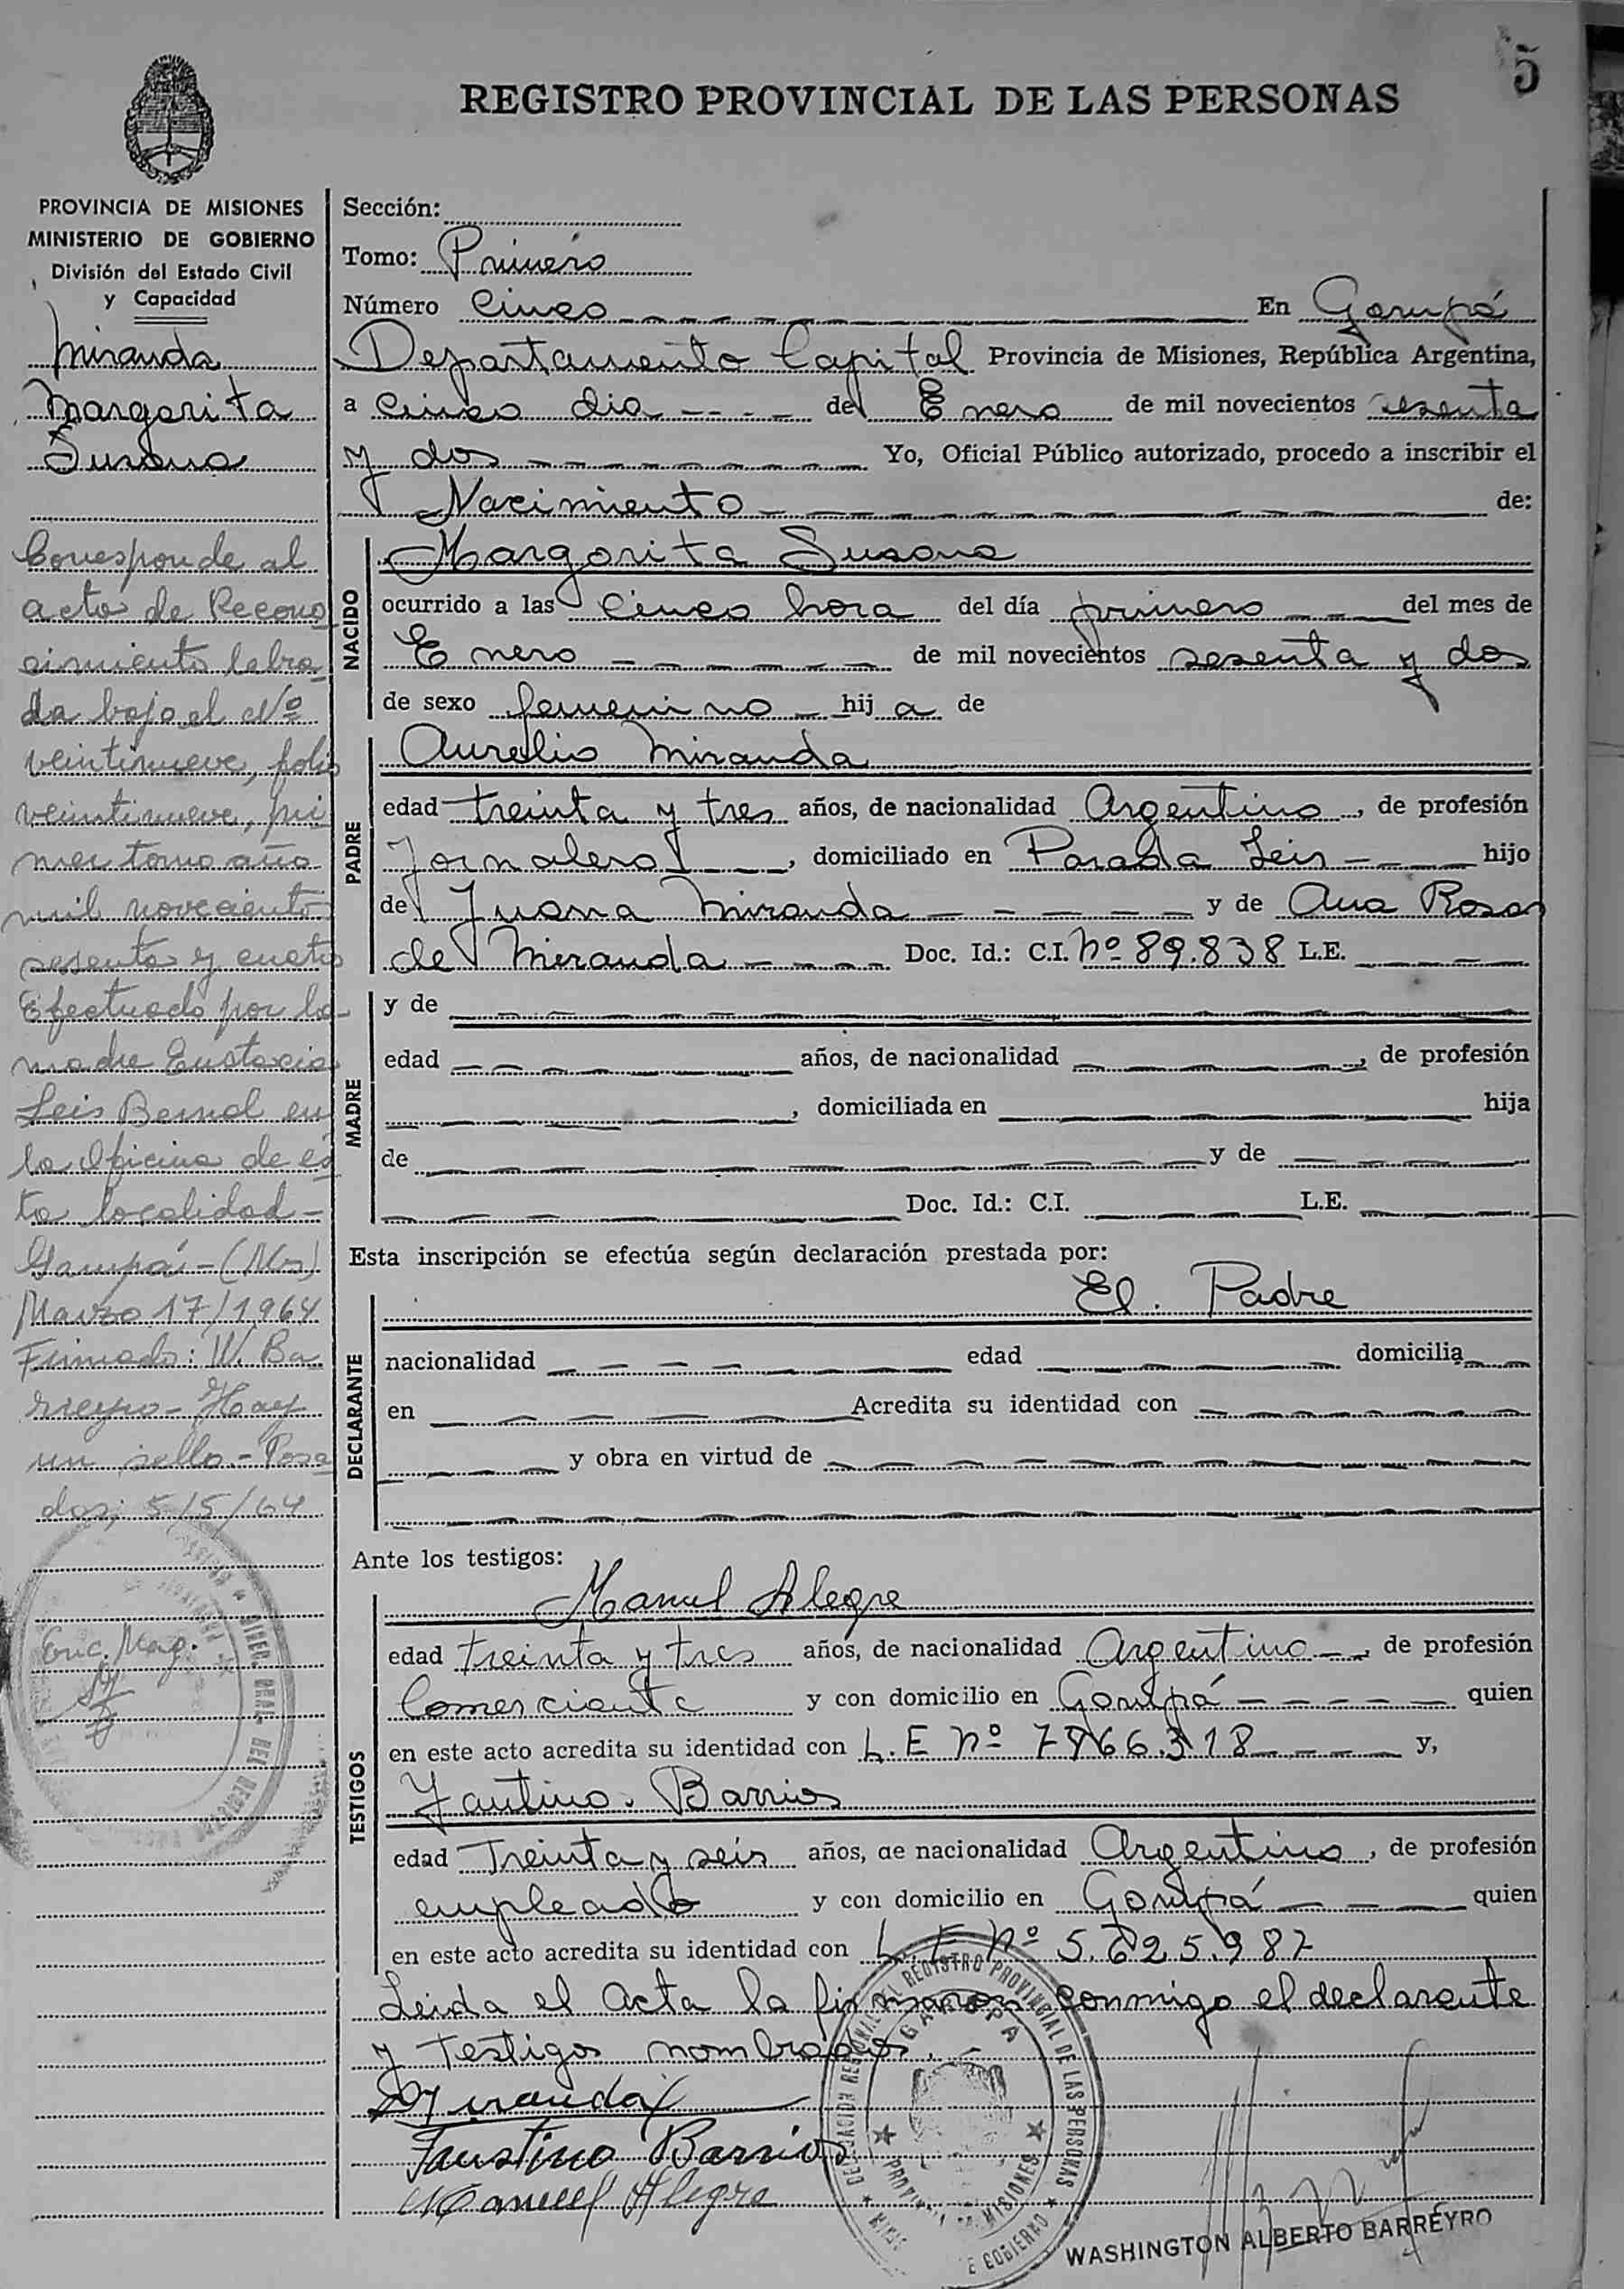 5
REGISTRO PROVINCIAL DE LAS PERSONAS
PROVINCIA DE MISIONES
MINISTERIO DE GOBIERNO
División del Estado Civil
y Capacidad
Miranda
Margarita
Susana
Corresponde al
acto de Recono
cimiento labra
da bajo el Nº
veintinueve, folio
veintinueve, pri
mer tomo año
mil novecientos
sesenta y cuatro
Efectuado por la
madre Eustacia
Leis Bernal en
la Oficina de es
ta localidad -
Garupá - (Mns)
Marzo 17/1964
Firmado: W. Ba
rreyro - Hay
un sello. - Posa
das; 5/5/64
Enc. Mag.
Sección:
Tomo: Primero
Número Cinco En Garupá
Departamento Capital Provincia de Misiones, República Argentina,
a cinco dia de Enero de mil novecientos sesenta
y dos Yo, Oficial Público autorizado, procedo a inscribir el
Nacimiento de:
NACIDO
Margarita Susana
ocurrido a las Cinco hora del día primero del mes de
Enero de mil novecientos sesenta y dos
de sexo femenino hij a de
PADRE
Aurelio Miranda
edad treinta y tres años, de nacionalidad Argentino, de profesión
Jornalero, domiciliado en Parada Leis hijo
de Juana Miranda y de Ana Rosa
de Miranda Doc. Id.: C.I. Nº 89.838 L.E.
MADRE
y de
edad años, de nacionalidad , de profesión
, domiciliada en hija
de y de
Doc. Id.: C.I. L.E.
Esta inscripción se efectúa según declaración prestada por:
DECLARANTE
El. Padre
nacionalidad edad domicilia
en Acredita su identidad con
y obra en virtud de
Ante los testigos:
TESTIGOS
Manuel Alegre
edad treinta y tres años, de nacionalidad Argentino, de profesión
Comerciante y con domicilio en Garupá quien
en este acto acredita su identidad con L.E Nº 7866.318 y,
Fautino. Barrios
edad Treinta y seis años, de nacionalidad Argentino, de profesión
empleado y con domicilio en Garupá quien
en este acto acredita su identidad con L.E Nº 5.625.987
Leida el Acta la firmaron conmigo el declarante
y Testigos nombrados.
Miranda
Faustino Barrios
Manuel Alegre
DELEGACION REGIONAL REGISTRO PROVINCIAL DE LAS PERSONAS
GARUPA
PROVINCIA DE MISIONES
WASHINGTON ALBERTO BARREYRO